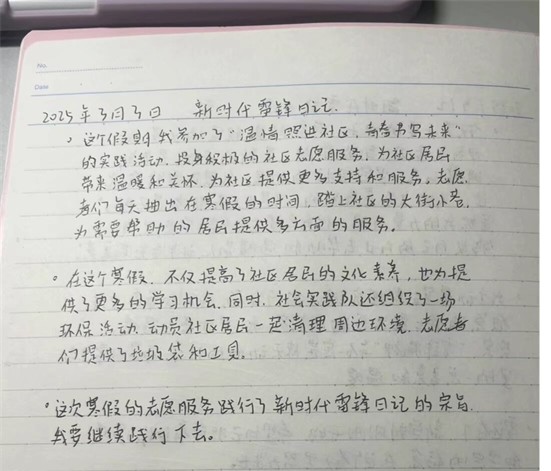 No.
Date
2025年3月3日 新时代雷锋日记
·这个假期我参加了“温情照进社区,青春书写未来”
的实践活动,投身积极的社区志愿服务,为社区居民
带来温暖和关怀,为社区提供更多支持和服务。志愿
者们每天抽出在寒假的时间,踏上社区的大街小巷,
为需要帮助的居民提供多方面的服务。
·在这个寒假,不仅提高了社区居民的文化素养,也为提
供了更多的学习机会,同时,社会实践队还组织了一场
环保活动,动员社区居民一起清理周边环境,志愿者
们提供了垃圾袋和工具。
·这次寒假的志愿服务践行了新时代雷锋日记的宗旨,
我要继续践行下去。